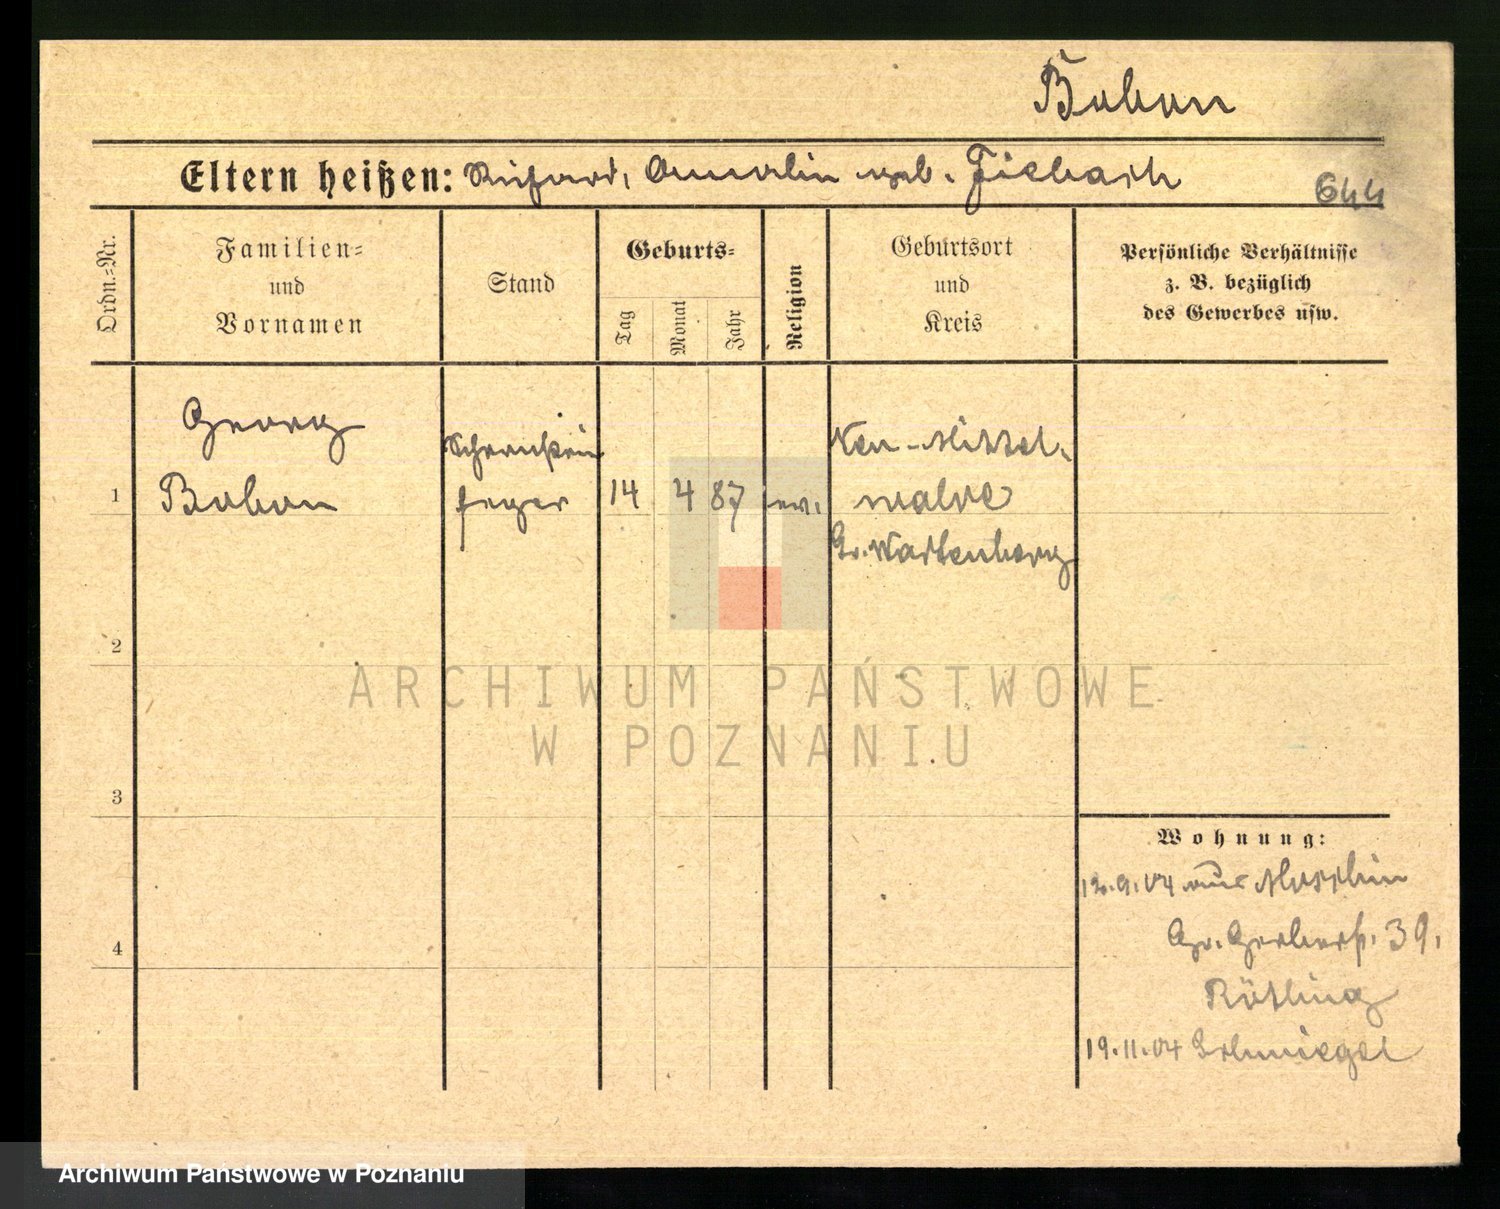 Bobon
Eltern heißen: Richard, Amalie geb. Fiebach
644
Ordn.=Nr.
Familien=
und
Vornamen
Stand
Geburts=
Tag
Monat
Jahr
Religion
Geburtsort
und
Kreis
Persönliche Verhältnisse
z. B. bezüglich
des Gewerbes usw.
Georg
Schornstein
Neu-Mittel-
1
Bobon
feger
14
4
87
ev.
walde
Gr. Wartenberg
2
ARCHIWUM PAŃSTWOWE
W POZNANIU
3
Wohnung:
12.9.04 aus
Gr. Gerberstr. 39.
4
19.11.04 Schmiegel
Archiwum Państwowe w Poznaniu